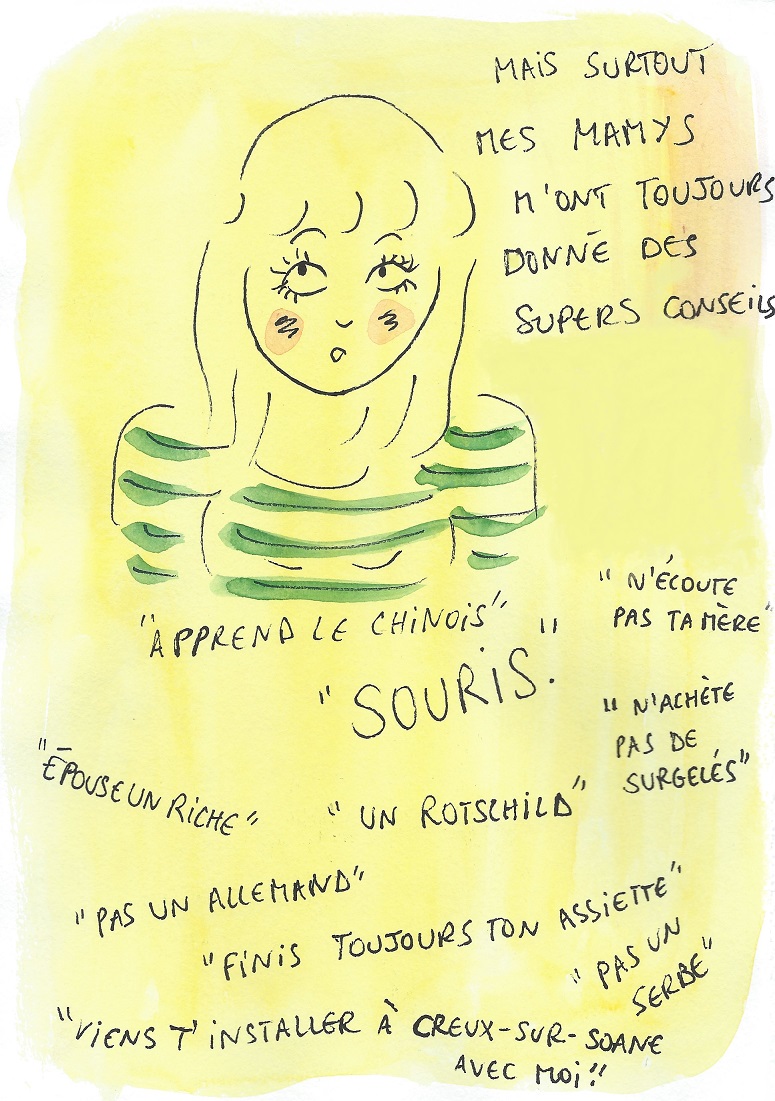 MAIS SURTOUT
MES MAMYS
M'ONT TOUJOURS
DONNÉ DES
SUPERS CONSEILS
"N'ÉCOUTE
PAS TA MÈRE"
"APPREND LE CHINOIS"
"SOURIS."
"N'ACHÈTE
PAS DE
SURGELÉS"
"ÉPOUSE UN RICHE"
"UN ROTSCHILD"
"PAS UN ALLEMAND"
"FINIS TOUJOURS TON ASSIETTE"
"PAS UN
SERBE"
"VIENS T'INSTALLER À CREUX-SUR-SOANE
AVEC MOI!!